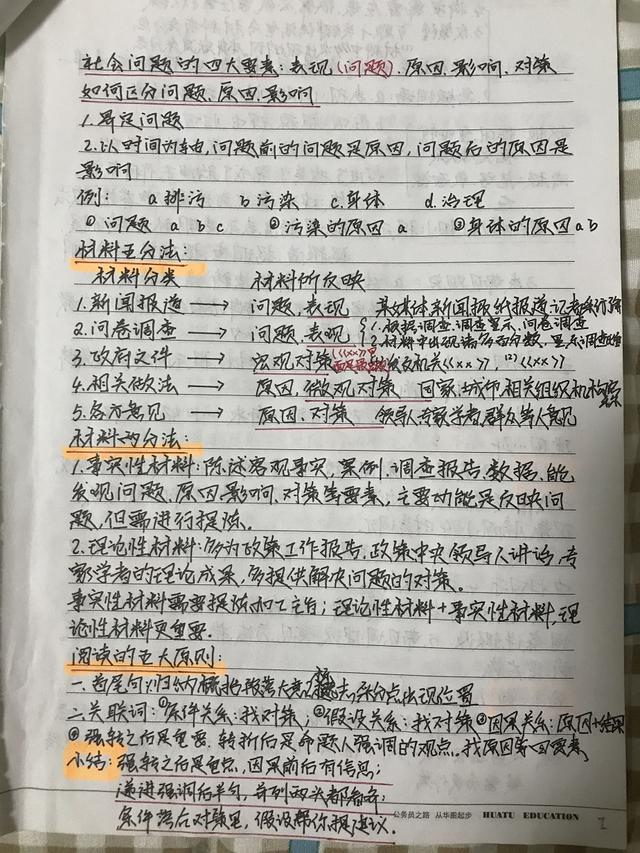 社会问题的四大要素:表现(问题).原因.影响.对策
如何区分问题.原因.影响
1.界定问题
2.以时间为轴,问题前的问题是原因,问题后的原因是
影响
例: a排污 b污染 c.身体 d.治理
①问题 a b c ②污染的原因 a ③身体的原因 a b
材料五分法:
材料分类 材料所反映
1.新闻报道 → 问题.表现 某媒体新闻报纸报道记者
2.问卷调查 → 问题.表现 {1.根据调查.调查显示.问卷调查
2.材料中出现诸多百分数
3.政府文件 → 宏观对策 发机关《xx》,(2)《xx》
4.相关做法 → 原因,微观对策 国家.城市.相关组织机构
5.各方意见 → 原因.对策 领导人专家学者.群众等人意见
材料两分法:
1.事实性材料:陈述客观事实,案例.调查报告.数据.能
发现问题.原因.影响.对策等要素,主要功能是反映问
题,但需进行提炼.
2.理论性材料:多为政策工作报告.政策中央领导人讲话,专
家学者的理论成果,多提供解决问题的对策。
事实性材料需要提炼加工主旨;理论性材料+事实性材料,理
论性材料更重要.
阅读的五大原则:
一.首尾句:归纳概括段落大意
二.关联词:①条件关系:找对策;②假设关系:找对策③因果关系:原因+结果
④强转之后是重要.转折后是命题人强调的观点.找原因等四要素
小结:强转之后是重点,因果前后有信息;
递进强调后半句,并列两头都
条件落后对策里,假设帮你提建议.
公务员之路 从华图起步 HUATU EDUCATION